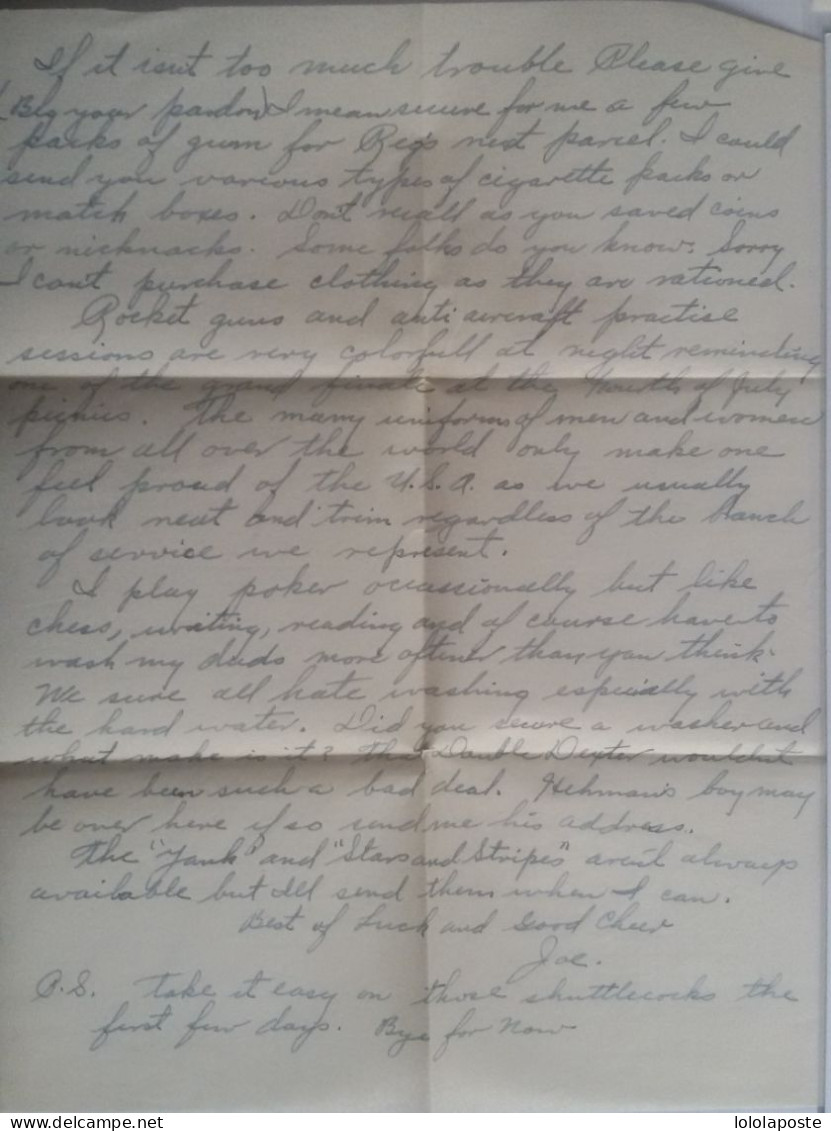 If it isn't too much trouble Please give
(Beg your pardon) I mean secure for me a few
packs of gum for Reg's next parcel. I could
send you various types of cigarette packs or
match boxes. Don't recall as you saved coins
or nicknacks. Some folks do you know. Sorry
I can't purchase clothing as they are rationed.
Rocket guns and anti aircraft practise
sessions are very colorfull at night reminding
one of the grand finale at the Fourth of July
picnics. The many uniforms of men and women
from all over the world only make one
feel proud of the U.S.A. as we usually
look neat and trim regardless of the branch
of service we represent.
I play poker occassionally but like
chess, writing, reading and of course have to
wash my duds more oftener than you think.
We sure all hate washing especially with
the hard water. Did you secure a washer and
what make is it? That Double Dexter wouldn't
have been such a bad deal. Hehman's boy may
be over here if so send me his address.
The "Yank" and "Stars and Stripes" aren't always
available but I'll send them when I can.
Best of Luck and Good Cheer
Joe.
P.S. Take it easy on those shuttlecocks the
first few days. Bye for Now
lolalaposte